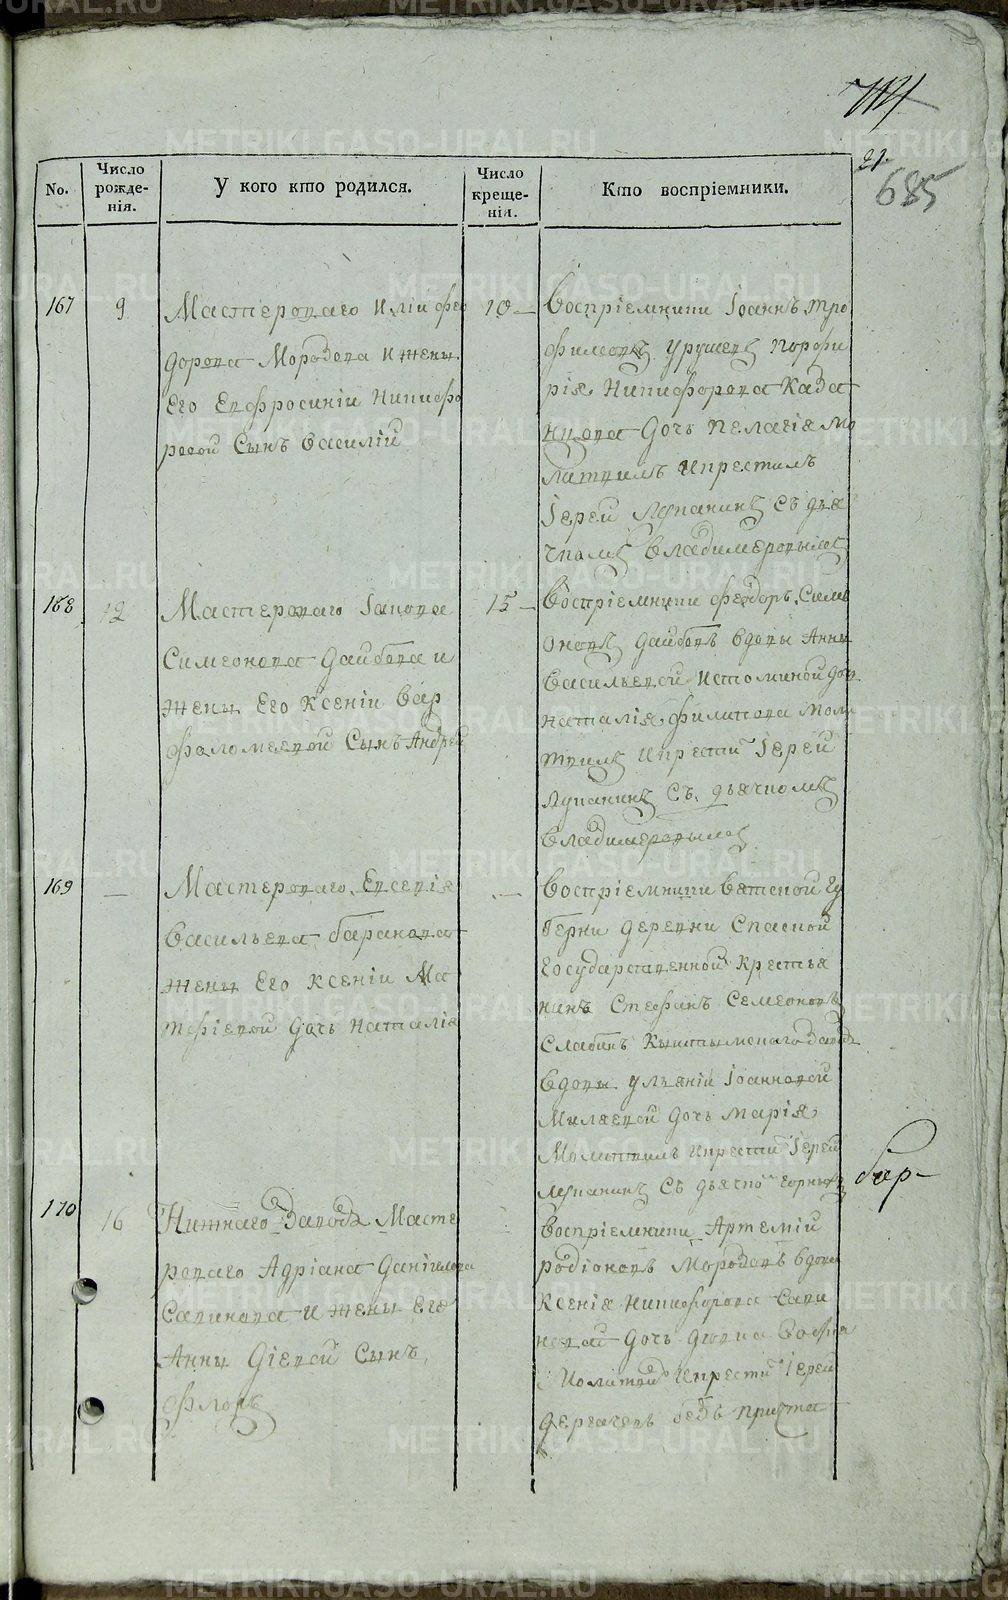 21.
685
No.
Число рожде-нія.
У кого кто родился.
Число креще-нія.
Кто воспріемники.
167
9
Мастероваго Иліи Фео
дорова Морозова и жены
Его Евфросиніи Никифо
ровой Сынъ Василій
10
Воспріемники Іоаннъ Тро
фимовъ Порфи
рія Никифорова Каза
нцова дочь Пелагія Мо
литвилъ и крестилъ
Іерей Лупанинъ съ дья
чкомъ Владимеровымъ
168
12
Мастероваго Іакова
Симеонова Дайбова и
жены Его Ксеніи Вар
фоломеевой Сынъ Андрей
15
Воспріемники Феодоръ Симе
оновъ Дайбовъ вдовы Анны
Васильевой Истоминой дочь
Наталія Филипова Моли
твилъ и крестил Іерей
Лупанинъ Съ дьячкомъ
Владимеровымъ
169
—
Мастероваго Евсевія
Васильева Баранова
жены Его Ксеніи Ма
тфіевой дочь Наталія
—
Воспріемники Вятской Гу
берни деревни Спаской
Государственной Крестья
нинъ Стефанъ Семеоновъ
Слабинъ Кыштымскаго завода
вдовы Ульяніи Іоанновой
Миляевой дочь Марія
Молитвилъ и крестил Іерей
Лупанинъ съ дьячко
170
16
Нижнаго Завода Масте
роваго Адріана Даніилова
Савинова и жены Его
Анны Сынъ
Флоръ
Воспріемники Артемій
Родіоновъ Морозовъ вдовы
Ксенія Никифорова Сави
новой дочь Софія
Молитвил и крестил Іерей
Дергачевъ безъ причта
METRIKI.GASO-URAL.RU